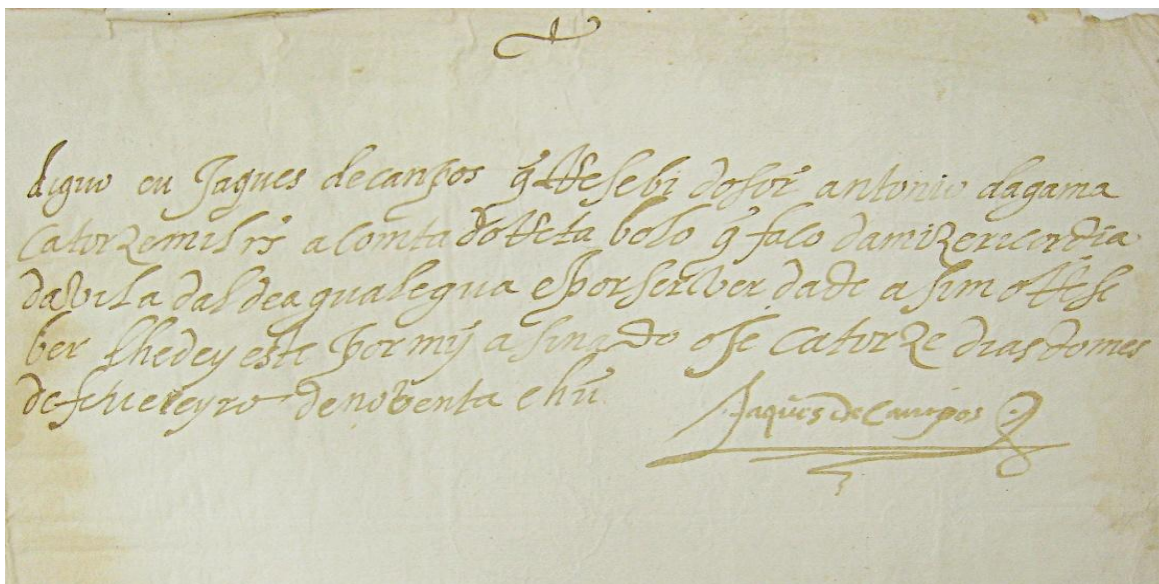 diguo eu Jaques de canpos q̃ Resebi do sor antonio dagama
Catorze mil rs a comta do Retabolo q̃ faço da mizericordia
da vila daldeagualegua e por ser verdade asim o Rese
ber lhe dey este por mỹ asinado oje catorze dias do mes
de feuereyro de noventa e hũ
Jaques de Campos